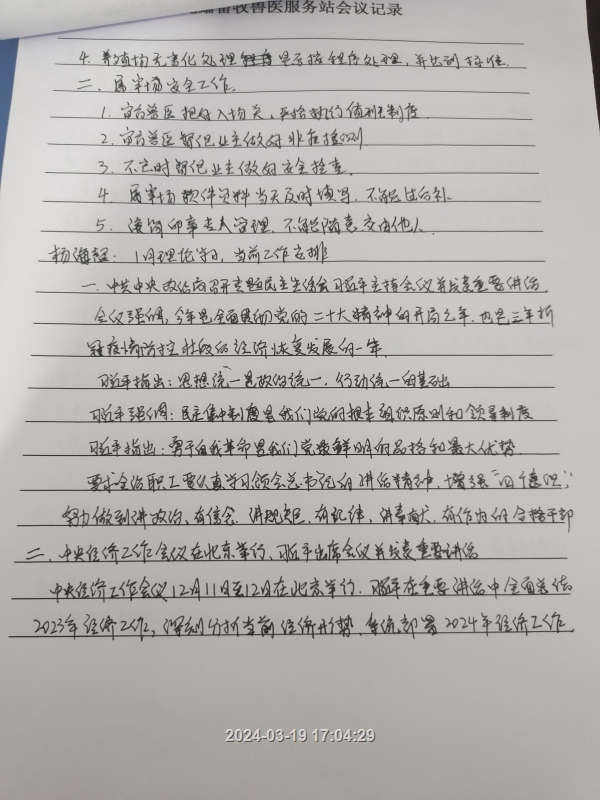 畜牧兽医服务站会议记录
4. 养殖场无害化处理是否按程序处理，并达到标准.
二、屠宰场安全工作.
1. 官方兽医把好入场关，严格执行值班制度.
2. 官方兽医督促业主做好非瘟检测
3. 不定时督促业主做好安全检查.
4. 屠宰场软件资料当天及时填写，不能过后补
5. 印章专人管理，不能随意交由他人.
1月理论学习，当前工作安排
一、中共中央政治局召开专题民主生活会习近平主持会议并发表重要讲话
会议强调，今年是全面贯彻党的二十大精神的开局之年，也是三年新
冠疫情防控转段后经济恢复发展的一年.
习近平指出：思想统一是政治统一、行动统一的基础
习近平强调：民主集中制度是我们党的根本组织原则和领导制度
习近平指出：勇于自我革命是我们党最鲜明的品格和最大优势.
要求全站职工要认真学习领会总书记的讲话精神，增强"四个意识"
努力做到讲政治、有信念、讲规矩、有纪律、讲奉献、有作为的合格干部
二、中央经济工作会议在北京举行、习近平出席会议并发表重要讲话
中央经济工作会议12月11日至12日在北京举行. 习近平在重要讲话中全面总结
2023年经济工作，深刻分析当前经济形势，系统部署2024年经济工作.
2024-03-19 17:04:29